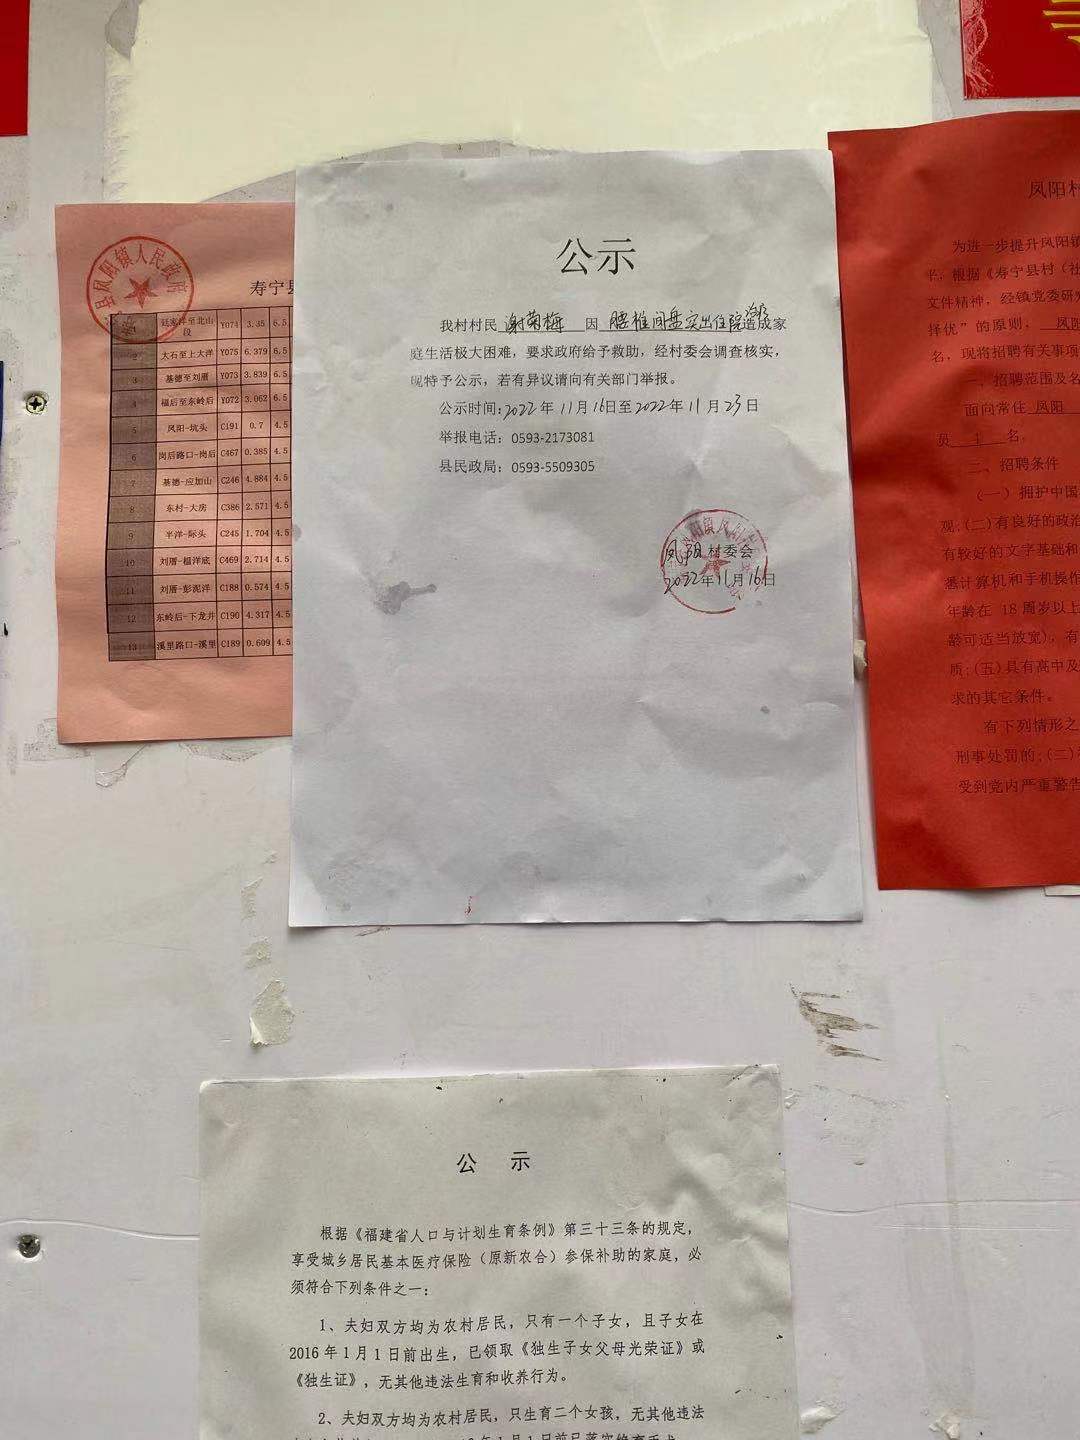 县凤阳镇人民政府
寿宁县
廷家洋至北山段 Y074 3.35 6.5
2 大石至上大洋 Y075 6.379 6.5
3 基德至刘厝 Y073 3.839 6.5
4 福后至东岭后 Y072 3.062 6.5
5 凤阳-坑头 C191 0.7 4.5
6 岗后路口-岗后 C467 0.385 4.5
7 基德-应加山 C246 4.884 4.5
8 东村-大房 C386 2.571 4.5
9 半洋-际头 C245 1.704 4.5
10 刘厝-榅洋底 C469 2.714 4.5
11 刘厝-彭泥洋 C188 0.574 4.5
12 东岭后-下龙井 C190 4.317 4.5
13 溪里路口-溪里 C189 0.609 4.5
公示
我村村民 谢菊梅 因 腰椎间盘突出住院治疗造成家
庭生活极大困难，要求政府给予救助，经村委会调查核实，
现特予公示，若有异议请向有关部门举报。
公示时间：2022年11月16日至2022年11月23日
举报电话：0593-2173081
县民政局：0593-5509305
凤阳村委会
2022年11月16日
凤阳村
为进一步提升凤阳镇
平，根据《寿宁县村（社
文件精神，经镇党委研究
择优”的原则， 凤阳
名，现将招聘有关事项
一、招聘范围及名
面向常住 凤阳
员 1 名。
二、招聘条件
（一）拥护中国
观;(二)有良好的政治
有较好的文字基础和
悉计算机和手机操作
年龄在 18 周岁以上
龄可适当放宽)，有
质;(五)具有高中及
求的其它条件。
有下列情形之
刑事处罚的;(二)
受到党内严重警告
公 示
根据《福建省人口与计划生育条例》第三十三条的规定，
享受城乡居民基本医疗保险（原新农合）参保补助的家庭，必
须符合下列条件之一：
1、夫妇双方均为农村居民，只有一个子女，且子女在
2016年1月1日前出生，已领取《独生子女父母光荣证》或
《独生证》，无其他违法生育和收养行为。
2、夫妇双方均为农村居民，只生育二个女孩，无其他违法